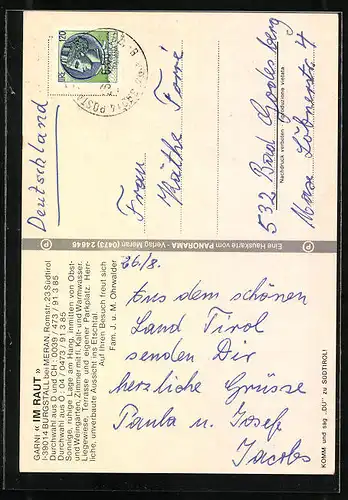 GARNI « IM RAUT »
I-39014 BURGSTALL bei MERAN, Romstr. 23 Südtirol
Durchwahl aus D und CH: 0039 / 473 / 91 3 85
Durchwahl aus Ö - 04 / 0473 / 91 3 85
Sonnige, ruhige Lage am Hang, inmitten von Obst-
und Weingärten, Zimmer mit fl. Kalt- und Warmwasser.
Liegewiese, Terrasse und eigener Parkplatz. Herr-
liche, unverbaute Aussicht ins Etschtal.
Auf Ihren Besuch freut sich
Fam. J. u. M. Ohrwalder
26./8.
Aus dem schönen
Land Tirol
senden Dir
herzliche Grüsse
Paula u. Josef
Jacobs
KOMM und sag „DU“ zu SÜDTIROL!
P Eine Hauskarte vom PANORAMA - Verlag Meran (0473) 24646 P
Deutschland
120
Frau
Käthe Forré
532 Bad Godesberg
Max Löbnerstr. 4
Nachdruck verboten - Riproduzione vietata